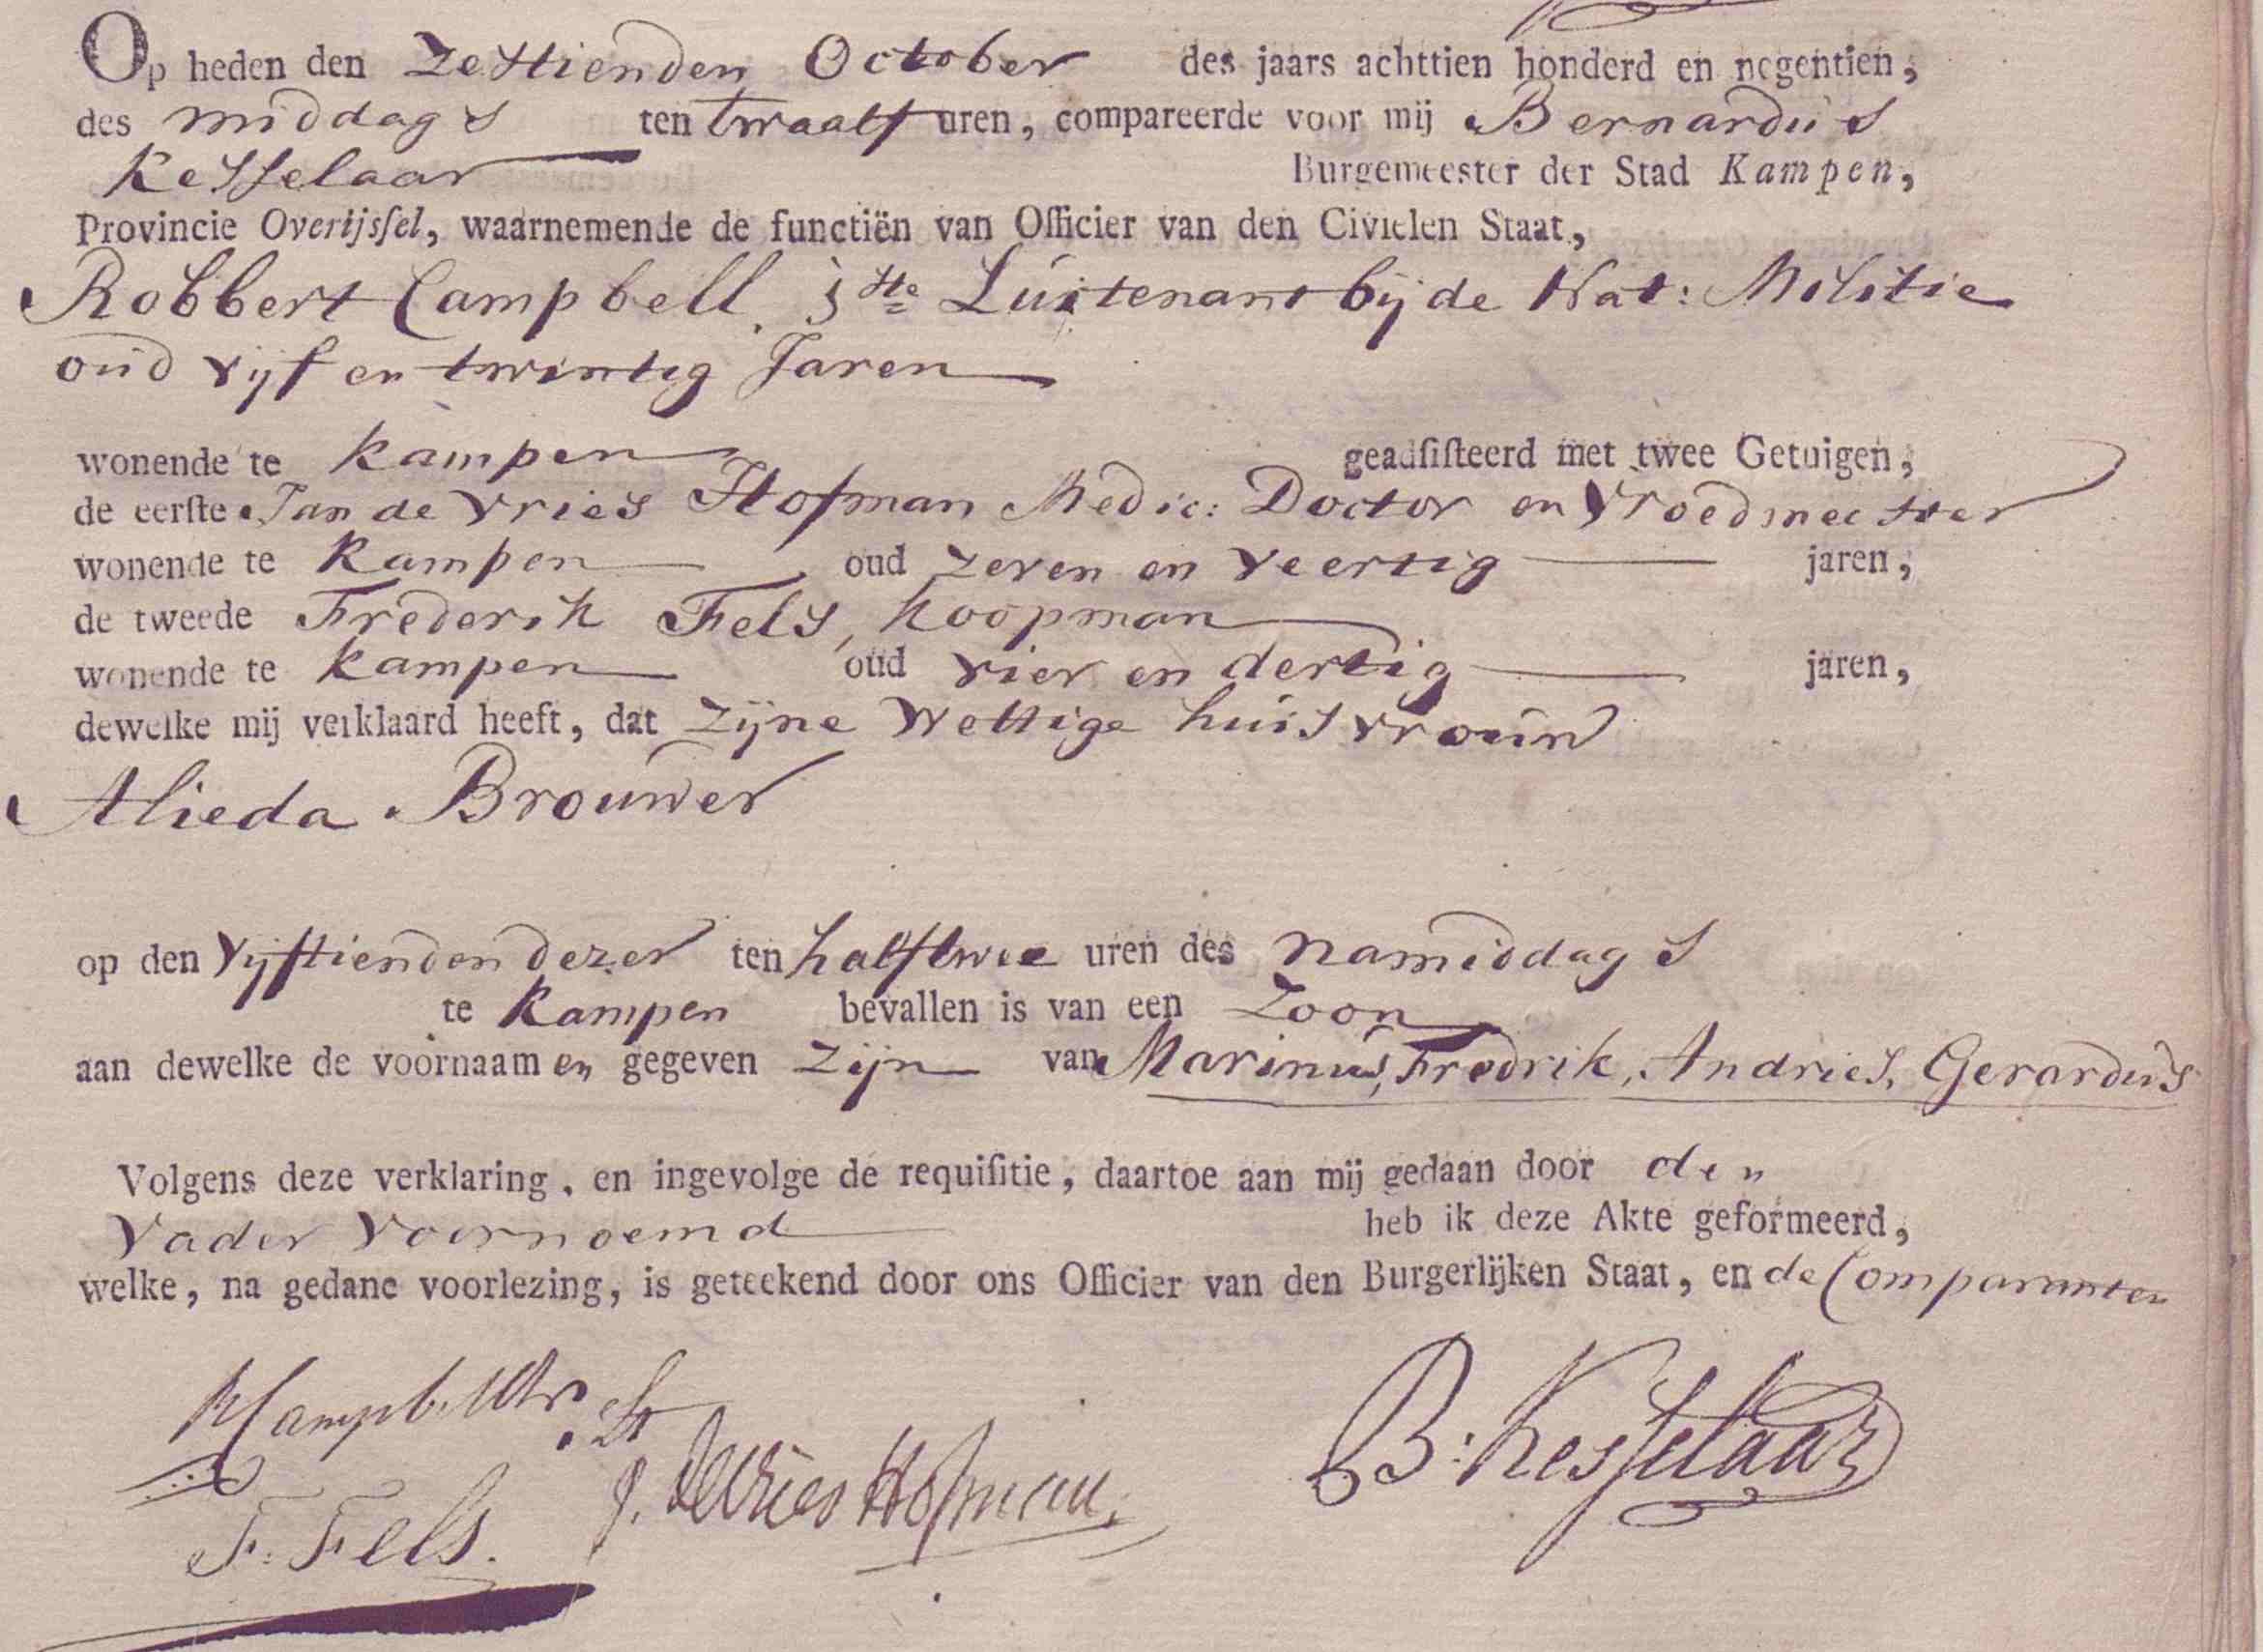 Op heden den Zestienden October des jaars achttien honderd en negentien,
des middags ten twaalf uren, compareerde voor mij Bernardus
Kesselaar Burgemeester der Stad Kampen,
Provincie Overijsſel, waarnemende de functiën van Officier van den Civielen Staat,
Robbert Campbell. 1ste Luitenant bij de Nat: Militie
oud vijf en twintig Jaren
wonende te Kampen geadſiſteerd met twee Getuigen,
de eerſte Jan de Vries Hofman Medic: Doctor en Vroedmeester
wonende te Kampen oud zeven en veertig jaren,
de tweede Frederik Fels, Koopman
wonende te Kampen oud vier en dertig jaren,
dewelke mij verklaard heeft, dat zijne Wettige huisvrouw
Alieda Brouwer
op den vijftienden dezer ten half twee uren des namiddags
te Kampen bevallen is van een Zoon
aan dewelke de voornaamen gegeven zijn van Marinus, Fredrik, Andries, Gerardus
Volgens deze verklaring, en ingevolge de requiſitie, daartoe aan mij gedaan door den
Vader voornoemd heb ik deze Akte geformeerd,
welke, na gedane voorlezing, is geteekend door ons Officier van den Burgerlijken Staat, en de Comparanten
R Campbell
J. de Vries Hofman
B: Kesselaar
F: Fels.